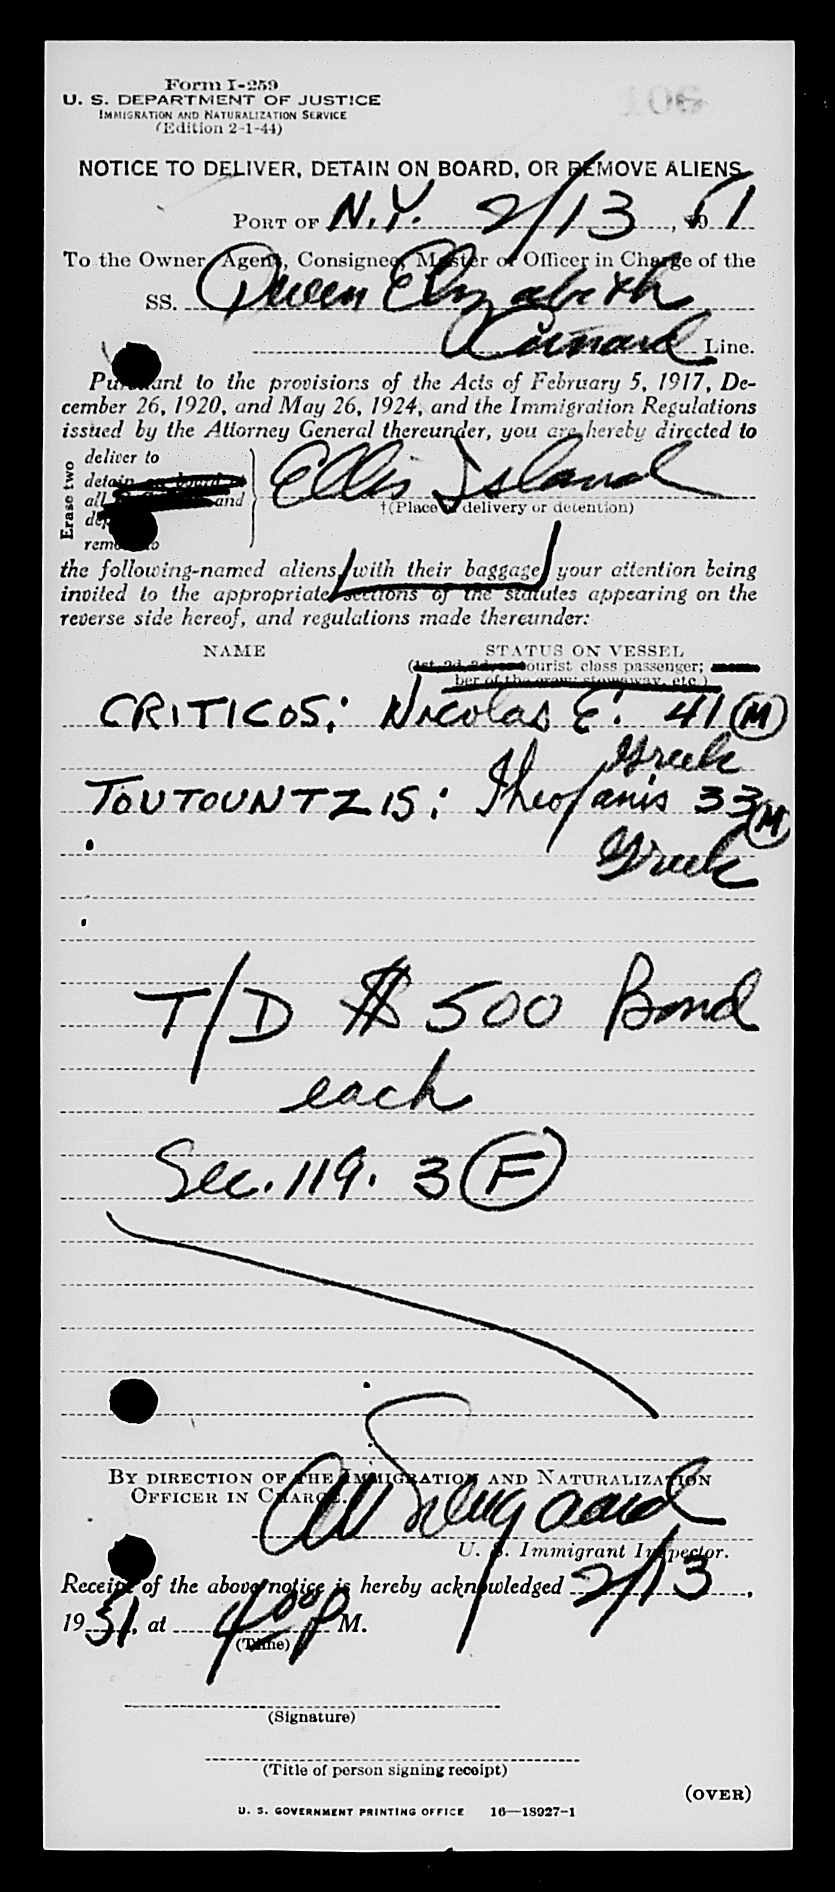 106
Form I-259
U. S. DEPARTMENT OF JUSTICE
IMMIGRATION AND NATURALIZATION SERVICE
(Edition 2-1-44)
NOTICE TO DELIVER, DETAIN ON BOARD, OR REMOVE ALIENS
PORT OF N.Y. 2/13, 1951
To the Owner, Agent, Consignee, Master or Officer in Charge of the
SS. Queen Elizabeth
Cunard Line.
Pursuant to the provisions of the Acts of February 5, 1917, De-
cember 26, 1920, and May 26, 1924, and the Immigration Regulations
issued by the Attorney General thereunder, you are hereby directed to
Erase two
deliver to
detain on board
all and
remove to
Ellis Island
†(Place of delivery or detention)
the following-named aliens, with their baggage, your attention being
invited to the appropriate sections of the statutes appearing on the
reverse side hereof, and regulations made thereunder:
NAME STATUS ON VESSEL
(1st, 2d, 3d, or tourist class passenger; mem-
ber of the crew; stowaway, etc.)
CRITICOS; Nicolas E. 41 M
Greek
TOUTOUNTZIS; Theofanis 33 M
Greek
T/D $500 Bond
each
Sec. 119. 3 F
BY DIRECTION OF THE IMMIGRATION AND NATURALIZATION
OFFICER IN CHARGE.
U. S. Immigrant Inspector.
Receipt of the above notice is hereby acknowledged 2/13,
1951, at 4:00 P M.
(Time)
(Signature)
(Title of person signing receipt)
(OVER)
U. S. GOVERNMENT PRINTING OFFICE 16—18927-1